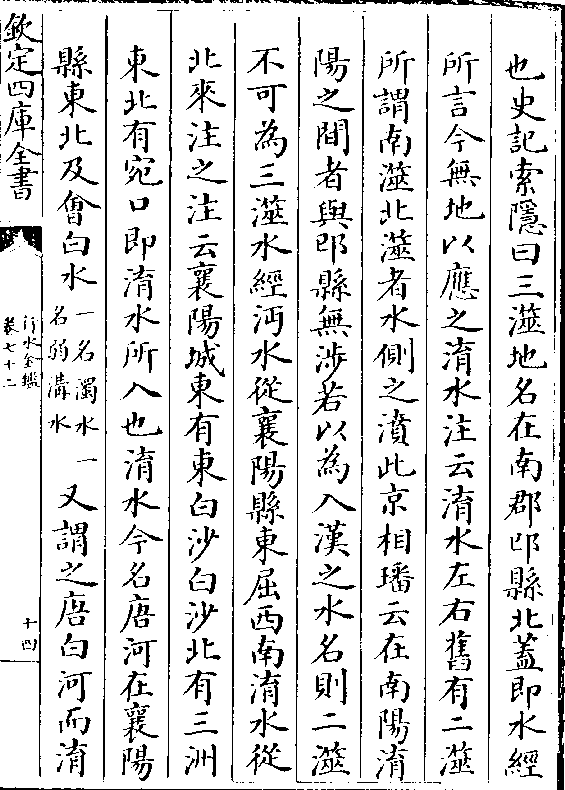 也史記索隱曰三澨地名在南郡邔縣北蓋即水經
所言今無地以應之淯水注云淯水左右舊有二澨
所謂南澨北澨者水側之濆此京相璠云在南陽淯
陽之間者與邔縣無涉若以為入漢之水名則二澨
不可為三澨水經沔水從襄陽縣東屈西南淯水從
北來注之注云襄陽城東有東白沙白沙北有三洲
東北有宛口即淯水所入也淯水今名唐河在襄陽
縣東北及會白水一名濁水一名弱溝水又謂之唐白河而淯
欽定四庫全書
行水金鑑
卷七十二
十四